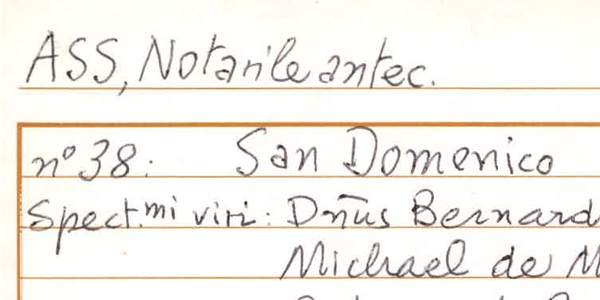 ASS, Notarile antec.
n° 38: San Domenico
Spect.mi viri: Dn̄us Bernard
Michael de M